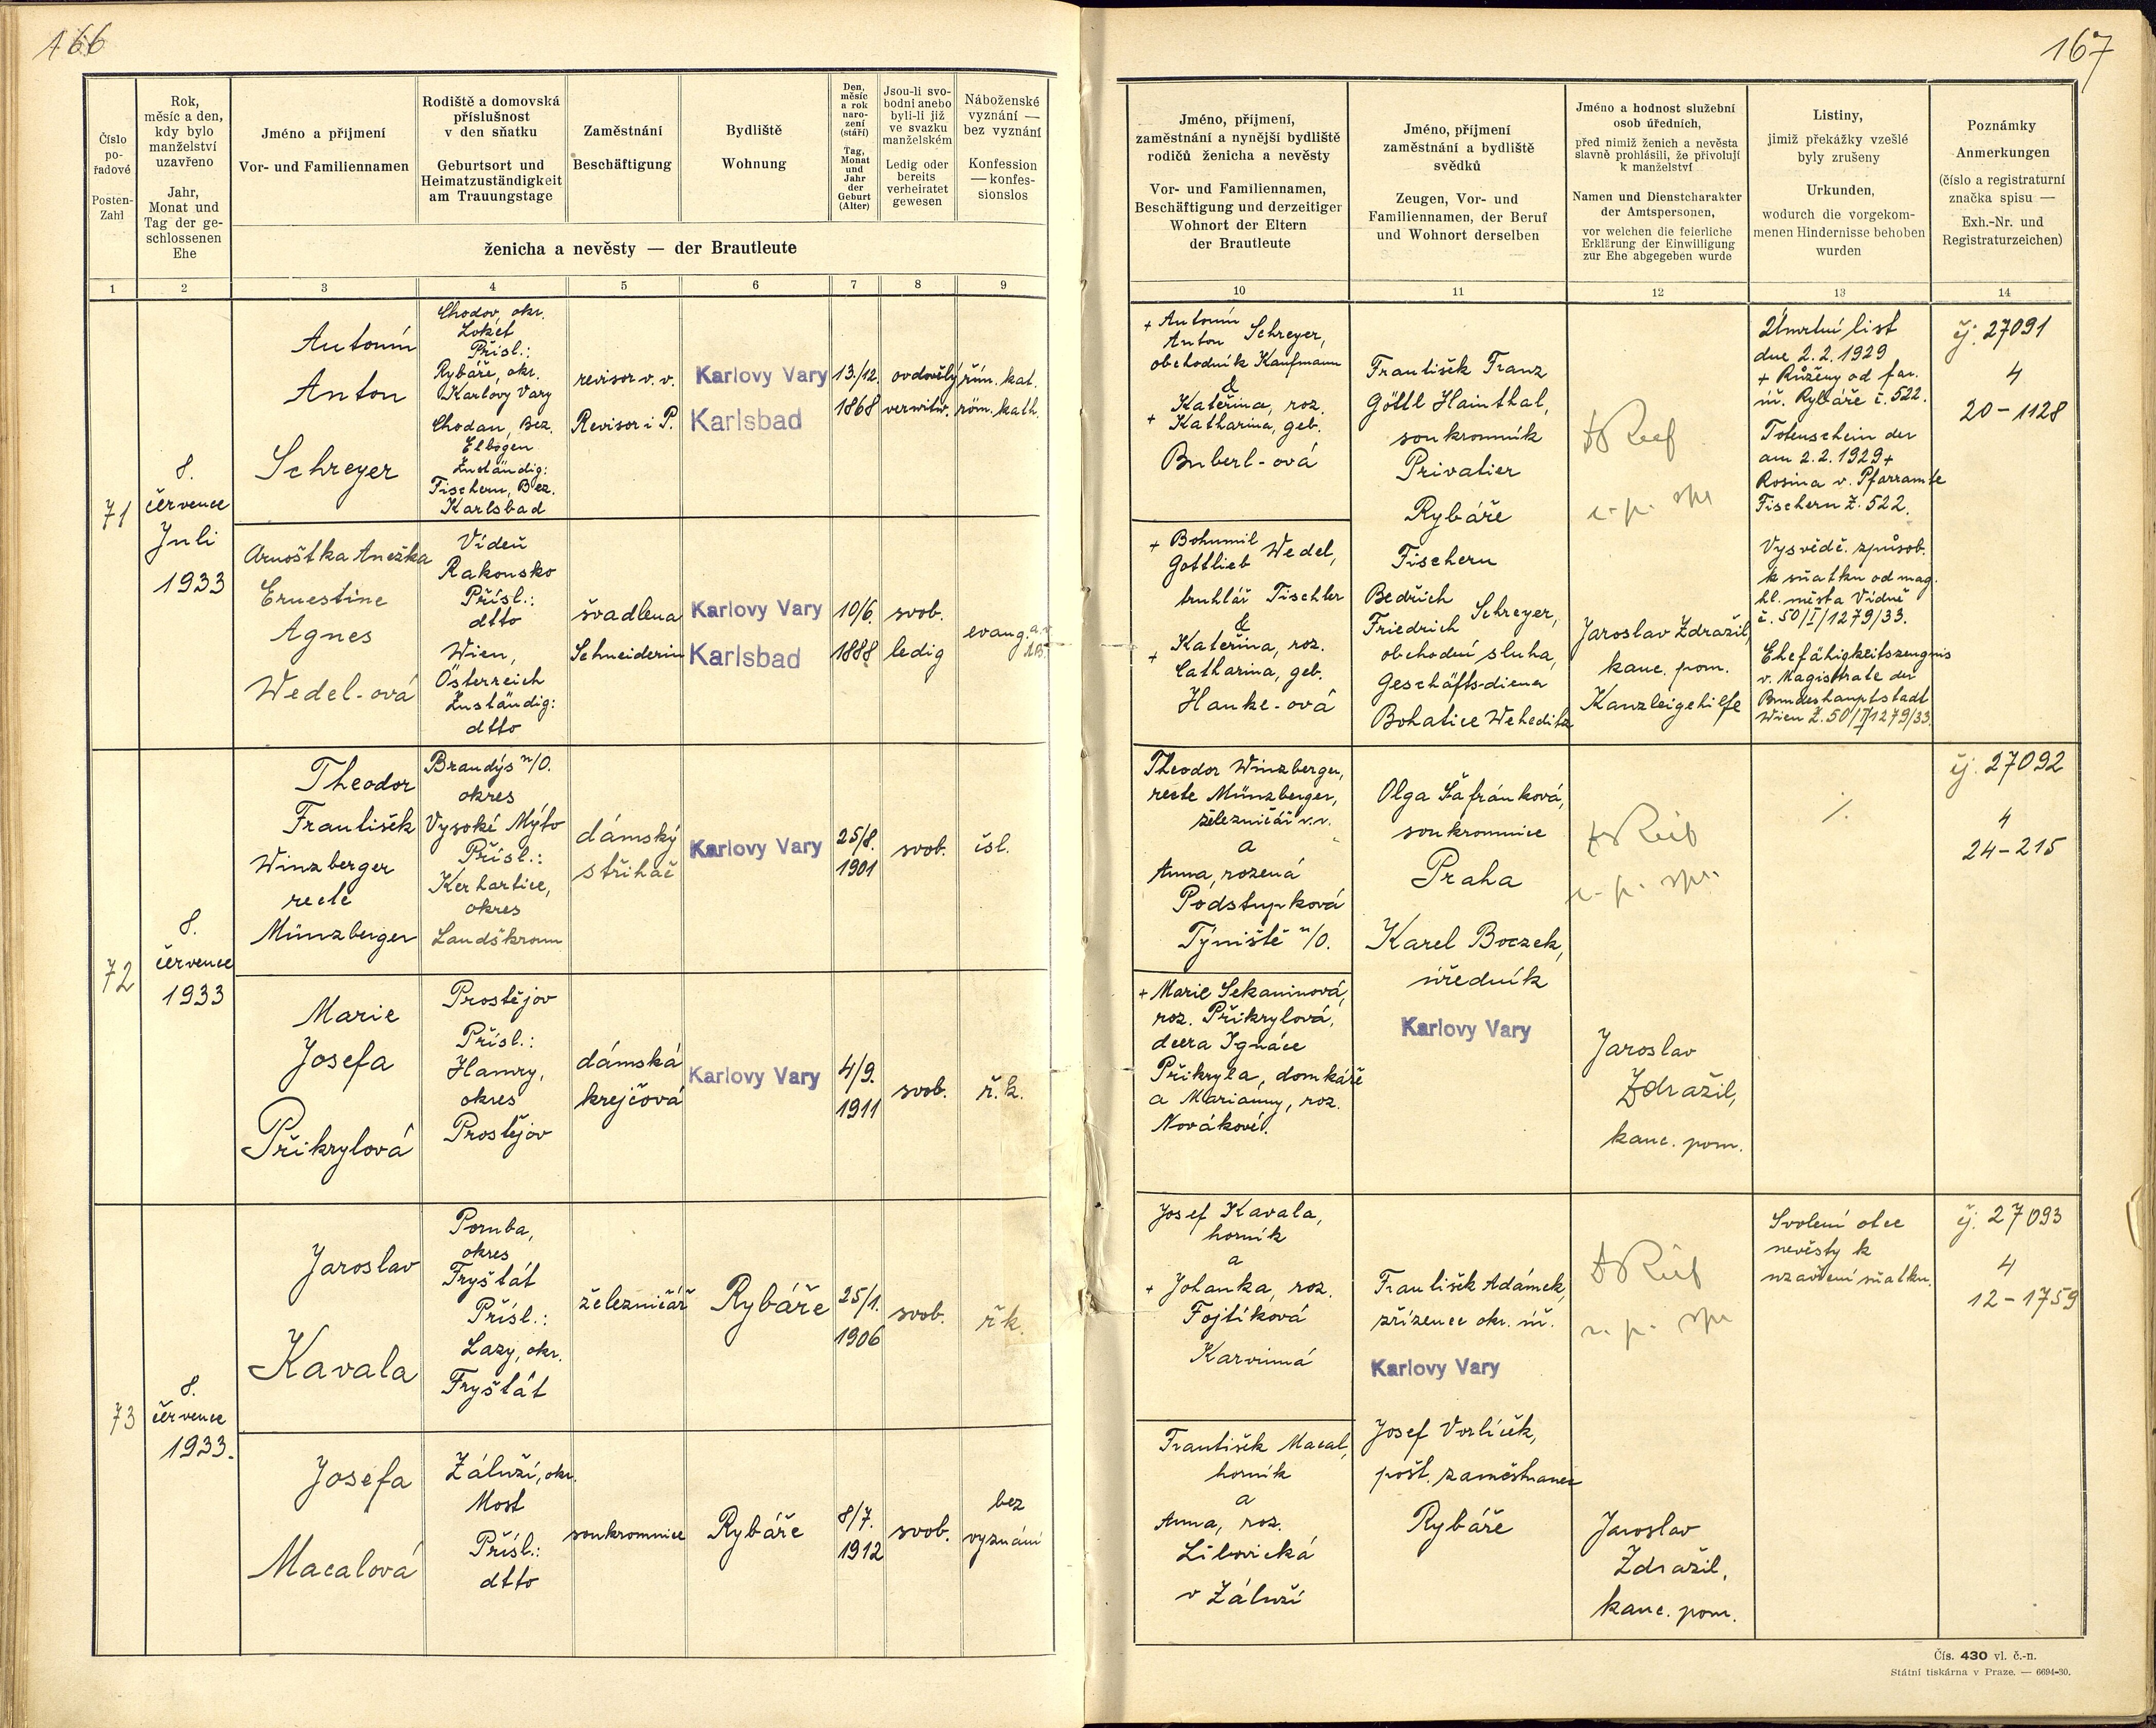 166
Číslo pořadové
Posten-Zahl
Rok, měsíc a den, kdy bylo manželství uzavřeno
Jahr, Monat und Tag der geschlossenen Ehe
Jméno a příjmení
Vor- und Familiennamen
Rodiště a domovská příslušnost v den sňatku
Geburtsort und Heimatzuständigkeit am Trauungstage
Zaměstnání
Beschäftigung
Bydliště
Wohnung
Den, měsíc a rok narození (stáří)
Tag, Monat und Jahr der Geburt (Alter)
Jsou-li svobodni anebo byli-li již ve svazku manželském
Ledig oder bereits verheiratet gewesen
Náboženské vyznání — bez vyznání
Konfession — konfessionslos
ženicha a nevěsty — der Brautleute
1 2 3 4 5 6 7 8 9
71
8.
července
Juli
1933
Antonín
Anton
Schreyer
Chodov, okr.
Loket
Přísl.:
Rybáře, okr.
Karlovy Vary
Chodau, Bez.
Elbogen
Zuständig:
Fischern, Bez.
Karlsbad
revisor v. v.
Revisor i P.
Karlovy Vary
Karlsbad
13./12.
1868
ovdovělý
verwitw.
řím. kat.
röm. kath.
Arnoštka Anežka
Ernestine
Agnes
Wedel-ová
Vídeň
Rakousko
Přísl.:
dtto
Wien,
Österreich
Zuständig:
dtto
švadlena
Schneiderin
Karlovy Vary
Karlsbad
10/6.
1888
svob.
ledig
evang. a.v.
A.B.
72
8.
července
1933
Theodor
František
Winzberger
recte
Münzberger
Brandýs n/O.
okres
Vysoké Mýto
Přísl.:
Kerhartice,
okres
Landškroun
dámský
střihač
Karlovy Vary
25/8.
1901
svob.
čsl.
Marie
Josefa
Přikrylová
Prostějov
Přísl.:
Hamry,
okres
Prostějov
dámská
krejčová
Karlovy Vary
4/9.
1911
svob.
ř.k.
73
8.
července
1933.
Jaroslav
Kavala
Poruba,
okres
Fryštát
Přísl.:
Lazy, okr.
Fryštát
železničář
Rybáře
25/1.
1906
svob.
ř.k.
Josefa
Macalová
Záluží, okr.
Most
Přísl.:
dtto
soukromnice
Rybáře
8/7.
1912
svob.
bez
vyznání
167
Jméno, příjmení, zaměstnání a nynější bydliště rodičů ženicha a nevěsty
Vor- und Familiennamen, Beschäftigung und derzeitiger Wohnort der Eltern der Brautleute
Jméno, příjmení zaměstnání a bydliště svědků
Zeugen, Vor- und Familiennamen, der Beruf und Wohnort derselben
Jméno a hodnost služební osob úředních,
před nimiž ženich a nevěsta slavně prohlásili, že přivolují k manželství
Namen und Dienstcharakter der Amtspersonen,
vor welchen die feierliche Erklärung der Einwilligung zur Ehe abgegeben wurde
Listiny,
jimiž překážky vzešlé byly zrušeny
Urkunden,
wodurch die vorgekommenen Hindernisse behoben wurden
Poznámky
Anmerkungen
(číslo a registraturní značka spisu —
Exh.-Nr. und Registraturzeichen)
10 11 12 13 14
+ Antonín
Anton Schreyer,
obchodník Kaufmann
&
Kateřina, roz.
+ Katharina, geb.
Buberl-ová
František Franz
Göttl Hainthal,
soukromník
Privatier
Rybáře
Fischern
Úmrtní list
dne 2.2.1929
+ Růženy od far.
úř. Rybáře č. 522.
Totenschein der
am 2.2.1929 +
Rosina v. Pfarramte
Fischern Z. 522.
čj. 27091
4
20-1128
+ Bohumil
Gottlieb Wedel,
truhlář Tischler
&
Kateřina, roz.
+ Catharina, geb.
Hanke-ová
Bedřich
Friedrich Schreyer,
obchodní sluha,
Geschäftsdiener
Bohatice Weheditz
Jaroslav Zdražil,
kanc. pom.
Kanzleigehilfe
Vysvědč. způsob.
k sňatku od mag.
hl. města Vídně
č. 50/I/1279/33.
Ehefähigkeitszeugnis
v. Magistrate der
Bundeshauptstadt
Wien Z. 50/I/1279/33.
Theodor Winzberger,
recte Münzberger,
železničář v.v.
a
Anna, rozená
Podstupková
Týniště n/O.
Olga Šafránková,
soukromnice
Praha
Karel Boczek,
úředník
Karlovy Vary
/.
čj. 27092
4
24-215
+ Marie Sekaninová,
roz. Přikrylová,
dcera Ignáce
Přikryla, domkáře
a Marianny, roz.
Novákové.
Jaroslav
Zdražil,
kanc. pom.
Josef Kavala,
horník
a
+ Johanka, roz.
Fojtíková
Karvinná
František Adámek,
zřízenec okr. úř.
Karlovy Vary
Svolení otce
nevěsty k
uzavření sňatku.
čj. 27093
4
12-1759
František Macal,
horník
a
Anna, roz.
Libovická
v Záluží
Josef Vorlíček,
pošt. zaměstnanec
Rybáře
Jaroslav
Zdražil,
kanc. pom.
Čís. 430 vl. č.-n.
Státní tiskárna v Praze. — 6694-30.